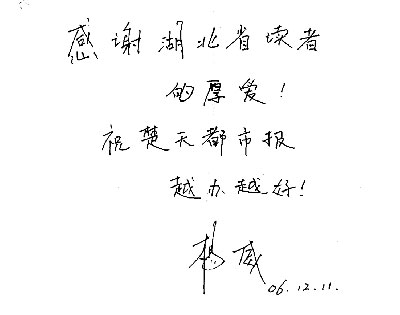 感谢湖北省读者
的厚爱！
祝楚天都市报
越办越好！
杨威
06.12.11.